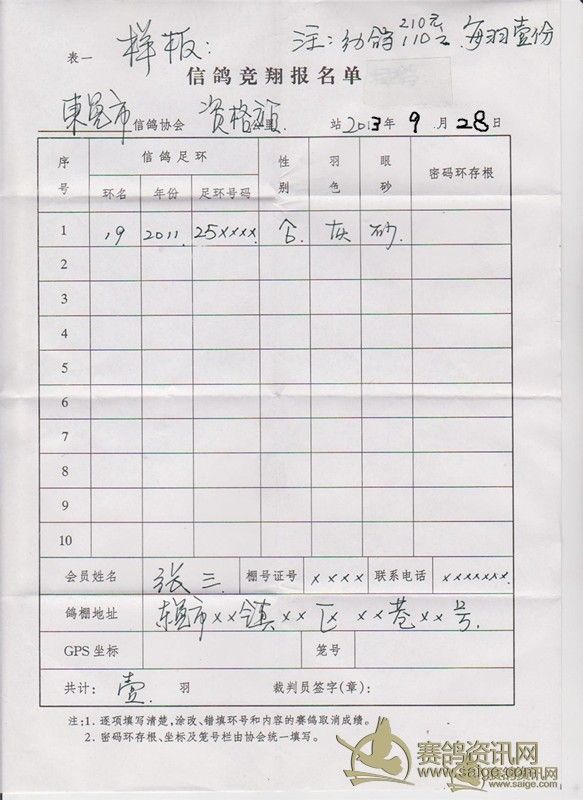 表一 样板: 注:幼鸽 210元 110元 每羽壹份
信鸽竞翔报名单
东莞市信鸽协会 资格 站2013年9月28日
序号 信鸽足环 性别 羽色 眼砂 密码环存根
环名 年份 足环号码
1 19 2011 25xxxx 灰 砂
2
3
4
5
6
7
8
9
10
会员姓名 张三 棚号证号 xxxx 联系电话 xxxxxxx
鸽棚地址 东莞市xx镇xx区xx巷xx号
GPS坐标 笼号
共计: 壹 羽 裁判员签字(章):
注:1. 逐项填写清楚,涂改、错填环号和内容的赛鸽取消成绩。
2. 密码环存根、坐标及笼号栏由协会统一填写。
赛鸽资讯网
www.saige.com
赛鸽资讯网
www.saige.com